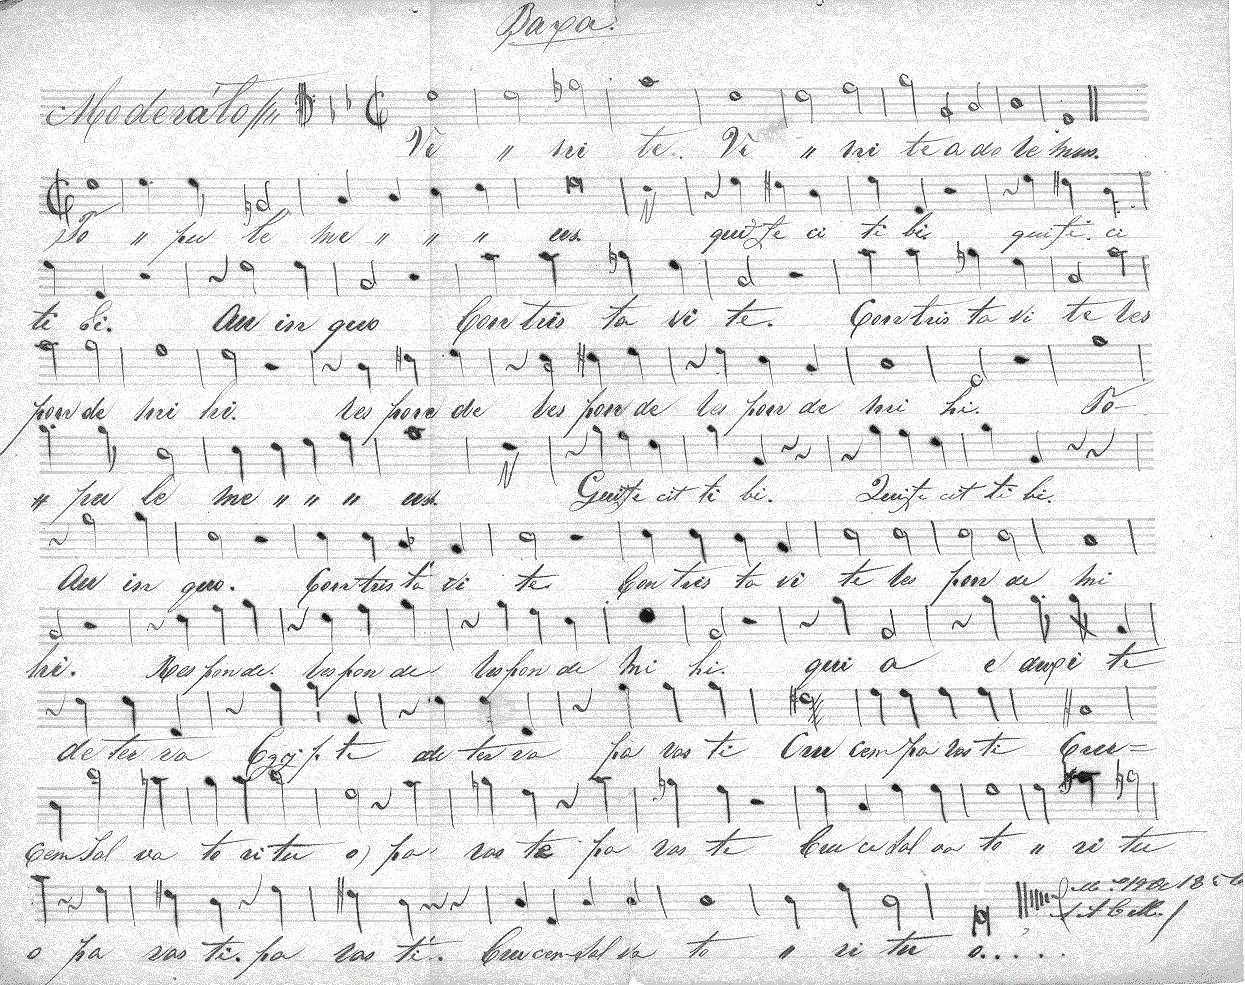 Baxa.
Moderáto
Vè " ni te. Vè " ni te a do re mus.
Pò " pu le me " " " us. qui fe ci ti bi. qui fe. ci
ti bi. Au in quo Contris ta vi te. Contris ta vi te res
pon de mi hi. res pon de res pon de res pon de mi hi. Pò-
" pu le me " " " us. Qui fe cit ti bi. Qui fe cit ti bi.
Au in quo. Contris ta vi te Contris ta vi te res pon de mi
hi. Respon de. respon de respon de mi hi. qui a e duxi te
de ter ra Egÿp. te de ter ra pa ras ti Cru cem pa ras ti Cru=
cem Sal va to ri tu o pa- ras te pa ras te Cru ce Sal va to " ri tu
o pa ras ti. pa ras ti. Crucem Sal va to " ri tu o.....